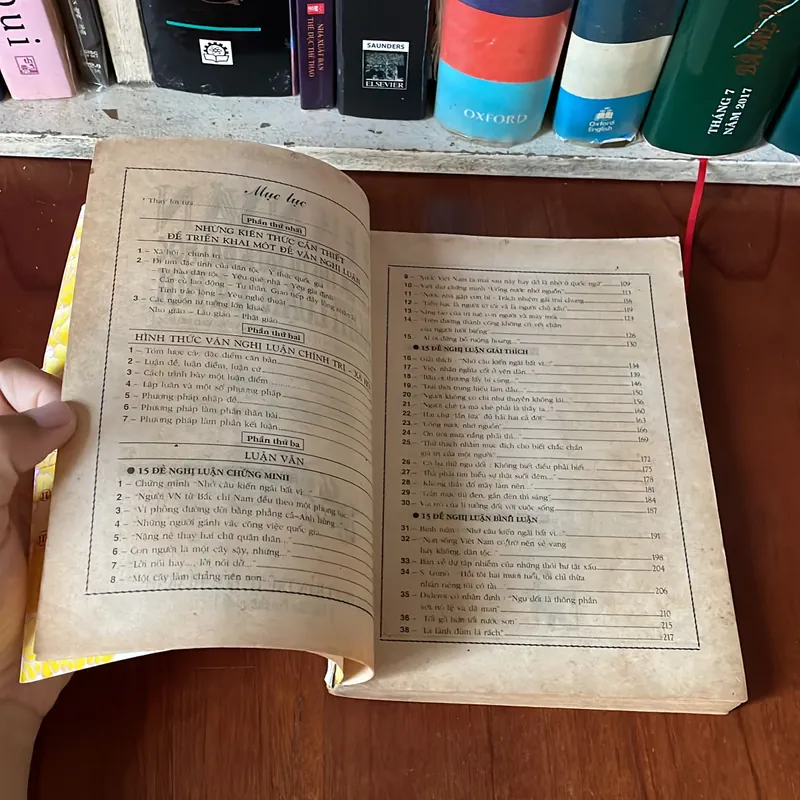 oui
NHÀ XUẤT BẢN
THỂ DỤC THỂ THAO
SAUNDERS
ELSEVIER
OXFORD
Oxford
English
THÁNG 7
NĂM 2017
Mục lục
* Thay lời tựa
Phần thứ nhất
NHỮNG KIẾN THỨC CẦN THIẾT
ĐỂ TRIỂN KHAI MỘT ĐỀ VĂN NGHỊ LUẬN
1 – Xã hội - chính trị
2 – Đi tìm đặc tính của dân tộc - Ý thức quốc gia
– Tự hào dân tộc – Yêu quê nhà – Yêu gia đình
– Cần cù lao động – Tự thân, Giao tiếp
Tính trào lộng – Yêu nghệ thuật
3 – Các nguồn tư tưởng lớn khác
Nho giáo – Lão giáo – Phật giáo
Phần thứ hai
HÌNH THỨC VĂN NGHỊ LUẬN CHÍNH TRỊ – XÃ HỘI
1 – Tóm lược các đặc điểm căn bản
2 – Luận đề, luận điểm, luận cứ
3 – Cách trình bày một luận điểm
4 – Lập luận và một số phương pháp
5 – Phương pháp nhập đề
6 – Phương pháp làm phần thân bài
7 – Phương pháp làm phần kết luận
Phần thứ ba
LUẬN VĂN
● 15 ĐỀ NGHỊ LUẬN CHỨNG MINH
1 – Chứng minh "Nhớ câu kiến ngãi bất vi..."
2 – "Người VN từ Bắc chí Nam đều theo một phong tục..."
3 – "Vì phỏng đường đời bằng phẳng cả-Anh hùng..."
4 – "Những người gánh vác công việc quốc gia
5 – "Nặng nề thay hai chữ quân thân..."
6 – Con người là một cây sậy, nhưng..."
7 – "Lời nói hay..., lời nói dở..."
8 – "Một cây làm chẳng nên non..."
9 – "Nước Việt Nam ta mai sau này hay dở là nhờ ở quốc ngữ" 109
10 – Viết thư chứng minh "Uống nước nhớ nguồn" 113
11 – "Nước nhà gặp cơn bĩ - Trách nhiệm gái trai chung 116
12 – "Tiền bạc là người tớ tốt và là người chủ xấu" 119
13 – Sáng tạo của trí tuệ con người và máy móc 123
14 – "Trên đường thành công không có vết chân
của người lười biếng" 126
15 – Ai ơi đừng bỏ ruộng hoang... 130
● 15 ĐỀ NGHỊ LUẬN GIẢI THÍCH
16 – Giải thích - "Nhớ câu kiến ngãi bất vi..." 134
17 – "Việc nhân nghĩa cốt ở yên dân..." 139
18 – "Bầu ơi thương lấy bí cùng..." 146
19 – "Đạo thời trung hiếu làm đầu..." 150
20 – "Người không có chí như thuyền không lái... 156
21 – "Người chê ta mà chê phải là thầy ta..." 160
22 – Hai chữ "lần lữa" đủ hại hai cả đời" 163
23 – "Uống nước nhớ nguồn" 166
24 – Ơn trời mưa nắng phải thì... 169
25 – "Thử thách nhằm mục đích cho biết chắc chắn
giá trị của một người" 172
26 – "Cả bà thứ ngu dốt : Không biết điều phải biết... 175
27 – "Thà phải tìm hiểu sự thật suốt đêm..." 178
28 – "Không thầy đố mày làm nên..." 181
29 – "Gần mực thì đen, gần đèn thì sáng" 184
30 – Vai trò của lí tưởng đối với cuộc sống 187
● 15 ĐỀ NGHỊ LUẬN BÌNH LUẬN
31 – Bình luận - "Nhớ câu kiến ngãi bất vi..." 191
32 – "Non sông Việt Nam có trở nên vẻ vang
hay không, dân tộc..." 198
33 – Bàn về dự tập nhiễm của những thói hư tật xấu 204
34 – S. Guinô : "Hồi tôi hai mươi tuổi, tôi chỉ thừa
nhận riêng tôi có tài... 206
35 – Diderot có nhận định : "Ngu dốt là thông phần
với nô lệ và dã man" 210
36 – "Tốt gỗ hơn tốt nước sơn" 215
38 – "Lá lành đùm lá rách" 217